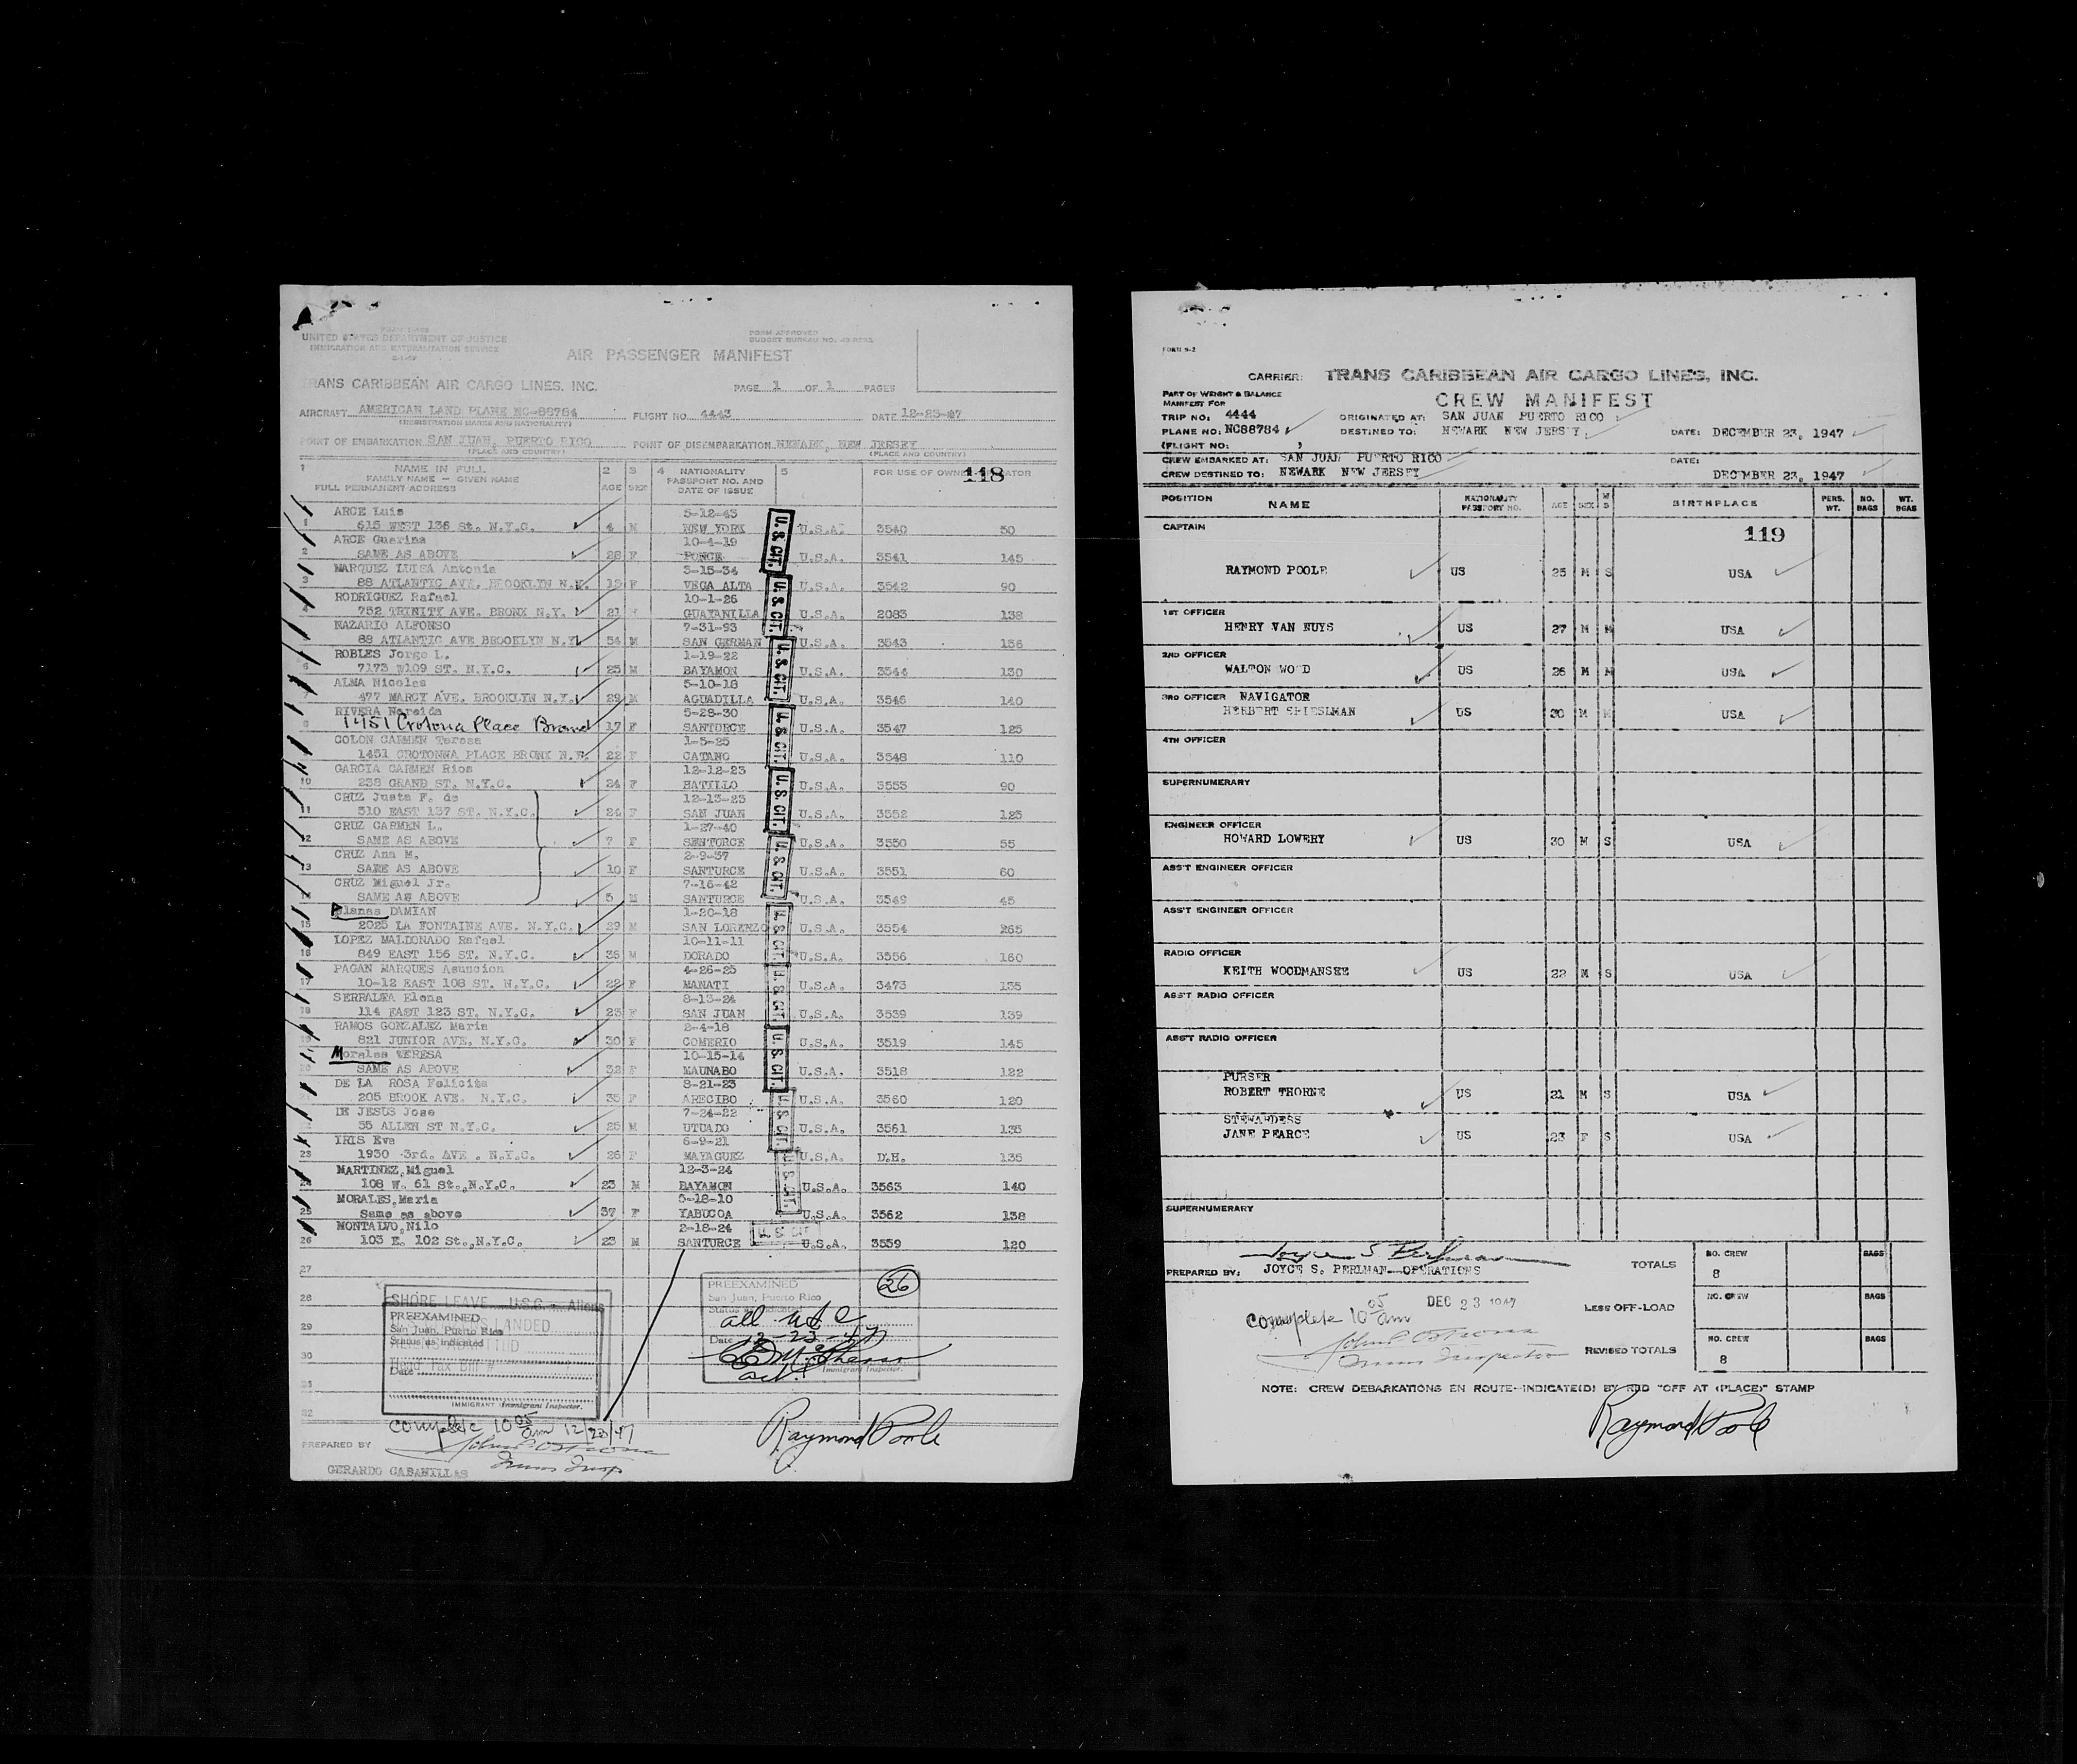 UNITED STATES DEPARTMENT OF JUSTICE
IMMIGRATION AND NATURALIZATION SERVICE
FORM APPROVED
BUDGET BUREAU NO.
AIR PASSENGER MANIFEST
TRANS CARIBBEAN AIR CARGO LINES, INC. PAGE 1 OF 1 PAGES
AIRCRAFT AMERICAN LAND PLANE NC-88784 FLIGHT NO. 4443 DATE 12-23-47
(REGISTRATION MARKS AND NATIONALITY)
POINT OF EMBARKATION SAN JUAN, PUERTO RICO POINT OF DISEMBARKATION NEWARK, NEW JERSEY
(PLACE AND COUNTRY) (PLACE AND COUNTRY)
1 NAME IN FULL 2 3 4 NATIONALITY 5 FOR USE OF 118
FAMILY NAME — GIVEN NAME PASSPORT NO. AND
FULL PERMANENT ADDRESS AGE SEX DATE OF ISSUE
ARCE Luis 5-12-43
1 615 WEST 136 St. N.Y.C. 4 M NEW YORK U.S.A. 3540 50
ARCE Guarina 10-4-19
2 SAME AS ABOVE 28 F PONCE U.S.A. 3541 145
MARQUEZ LUISA Antonia 3-15-34
3 88 ATLANTIC AVE. BROOKLYN N.Y. 13 F VEGA ALTA U.S.A. 3542 90
RODRIGUEZ Rafael 10-1-26
4 752 TRINITY AVE. BRONX N.Y. 21 GUAYANILLA U.S.A. 2083 138
NAZARIO ALFONSO 7-31-93
88 ATLANTIC AVE BROOKLYN N.Y. 54 M SAN GERMAN U.S.A. 3543 136
ROBLES Jorge L. 1-19-22
6 7173 W109 ST. N.Y.C. 25 M BAYAMON U.S.A. 3544 130
ALMA Nicolas 5-10-18
7 477 MARCY AVE. BROOKLYN N.Y. 29 M AGUADILLA U.S.A. 3546 140
RIVERA Nereida 5-28-30
1451 Crotona Place Bronx 17 F SANTURCE U.S.A. 3547 125
COLON CARMEN Teresa 1-5-25
1451 CROTONNA PLACE BRONX N.Y. 22 F CATANO U.S.A. 3548 110
GARCIA CARMEN Rios 12-12-23
10 238 GRAND ST. N.Y.C. 24 F HATILLO U.S.A. 3553 90
CRUZ Justa F. de 12-13-23
11 510 EAST 137 ST. N.Y.C. 24 F SAN JUAN U.S.A. 3552 125
CRUZ CARMEN L. 1-27-40
12 SAME AS ABOVE 7 F SENTORCE U.S.A. 3550 55
CRUZ Ana M. 2-9-37
13 SAME AS ABOVE 10 F SANTURCE U.S.A. 3551 60
CRUZ Miguel Jr. 7-16-42
14 SAME AS ABOVE 5 M SANTURCE U.S.A. 3549 45
Planas DAMIAN 1-20-18
15 2025 LA FONTAINE AVE. N.Y.C. 29 M SAN LORENZO U.S.A. 3554 265
LOPEZ MALDONADO Rafael 10-11-11
16 849 EAST 156 ST. N.Y.C. 36 M DORADO U.S.A. 3556 160
PAGAN MARQUES Asuncion 4-26-25
17 10-12 EAST 108 ST. N.Y.C. 22 F MANATI U.S.A. 3473 135
SERRALTA Elena 8-13-24
18 114 EAST 123 ST. N.Y.C. 23 F SAN JUAN U.S.A. 3539 139
RAMOS GONZALEZ Maria 2-4-18
19 821 JUNIOR AVE. N.Y.C. 30 F COMERIO U.S.A. 3519 145
Morales TERESA 10-15-14
20 SAME AS ABOVE 32 F MAUNABO U.S.A. 3518 122
DE LA ROSA Felicita 8-21-23
21 205 BROOK AVE. N.Y.C. 35 F ARECIBO U.S.A. 3560 120
DE JESUS Jose 7-24-22
35 ALLEN ST N.Y.C. 25 M UTUADO U.S.A. 3561 135
IRIS Eva 6-9-21
23 1930 -3rd. AVE . N.Y.C. 26 F MAYAGUEZ U.S.A. D.H. 135
MARTINEZ,Miguel 12-3-24
24 108 W. 61 St.,N.Y.C. 23 M BAYAMON U.S.A. 3563 140
MORALES,Maria 5-18-10
25 Same as above 37 F YABUCOA U.S.A. 3562 138
MONTALVO,Nilo 2-18-24
26 103 E. 102 St.,N.Y.C. 23 M SANTURCE U.S.A. 3559 120
U.S. CIT.
U.S. CIT.
U.S. CIT.
U.S. CIT.
U.S. CIT.
U.S. CIT.
U.S. CIT.
U.S. CIT.
U.S. CIT.
U.S. CIT.
U.S. CIT.
U.S. CIT
27
28
29
30
31
32
SHORE LEAVE U.S.C. Aliens
LANDED
PREEXAMINED
San Juan, Puerto Rico
Status as indicated
Head Tax
Date
IMMIGRANT Immigrant Inspector.
PREEXAMINED 26
San Juan, Puerto Rico
Status as indicated
all
Date 12-23-47
Immigrant Inspector.
Complete 10 05 am 12/23/47
PREPARED BY
GERARDO CABANILLAS
Raymond Poole
FORM
CARRIER: TRANS CARIBBEAN AIR CARGO LINES, INC.
PART OF WEIGHT & BALANCE
MANIFEST FOR
CREW MANIFEST
TRIP NO: 4444 ORIGINATED AT: SAN JUAN PUERTO RICO
PLANE NO: NC88784 DESTINED TO: NEWARK NEW JERSEY DATE: DECEMBER 23, 1947
(FLIGHT NO: )
CREW EMBARKED AT: SAN JUAN PUERTO RICO DATE:
CREW DESTINED TO: NEWARK NEW JERSEY DECEMBER 23, 1947
POSITION NAME NATIONALITY PASSPORT NO. AGE SEX BIRTHPLACE PERS. WT. NO. BAGS WT. BGAS
CAPTAIN 119
RAYMOND POOLE US 25 M S USA
1ST OFFICER
HENRY VAN NUYS US 27 M M USA
2ND OFFICER
WALTON US 26 M M USA
3RD OFFICER NAVIGATOR
HERBERT SPIESLMAN US 30 M M USA
4TH OFFICER
SUPERNUMERARY
ENGINEER OFFICER
HOWARD LOWERY US 30 M S USA
ASS'T ENGINEER OFFICER
ASS'T ENGINEER OFFICER
RADIO OFFICER
KEITH WOODMANSEE US 22 M S USA
ASS'T RADIO OFFICER
ASS'T RADIO OFFICER
PURSER
ROBERT THORNE US 21 M S USA
STEWARDESS
JANE PEARCE US 23 F S USA
SUPERNUMERARY
Joyce S Perlman
PREPARED BY: JOYCE S. PERLMAN--OPERATIONS TOTALS NO. CREW 8 BAGS
Complete 10 05 am DEC 23 1947 LESS OFF-LOAD NO. CREW BAGS
REVISED TOTALS NO. CREW 8 BAGS
NOTE: CREW DEBARKATIONS EN ROUTE--INDICATE(D) BY RED "OFF AT (PLACE)" STAMP
Raymond Poole